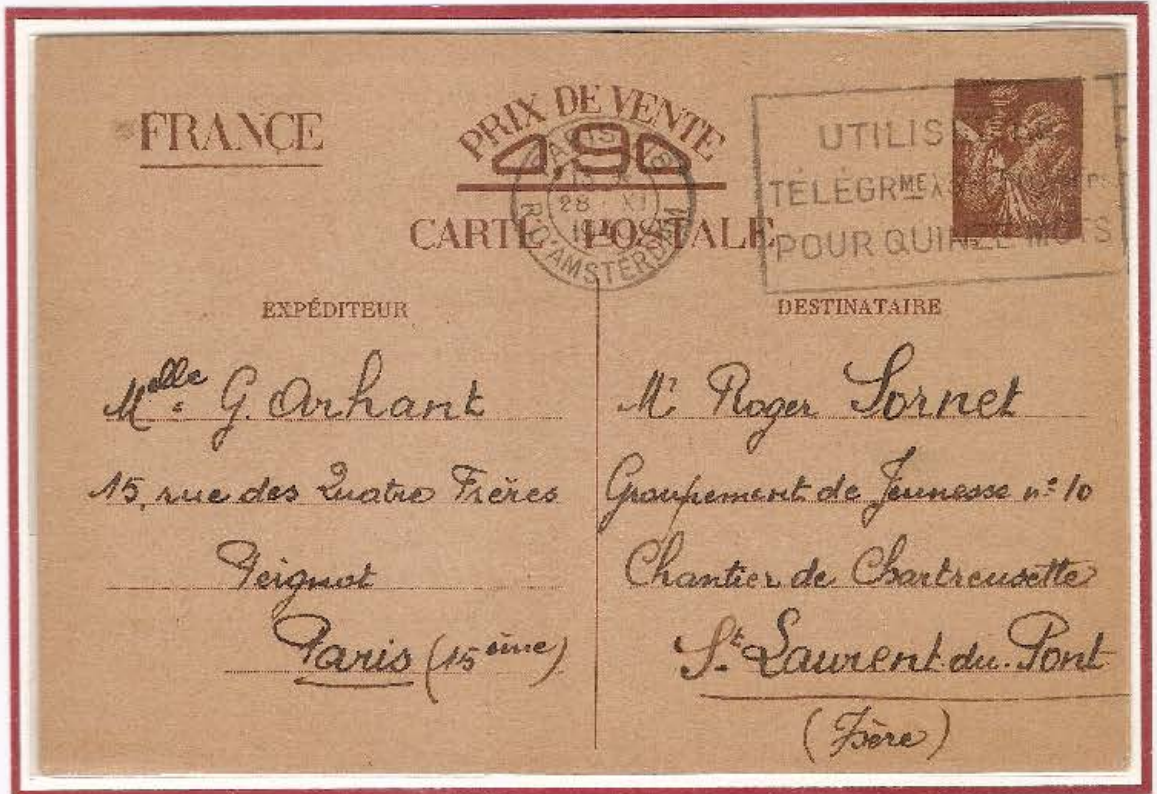 FRANCE
PRIX DE VENTE
0,90
CARTE POSTALE
R. D'AMSTERDAM
28 XI
TÉLÉGR^ME
POUR QUINZE MOTS
EXPÉDITEUR
M^elle G. Arhant
15, rue des Quatre Frères
Peignot
Paris (15 ème)
DESTINATAIRE
M^r Roger Sornet
Groupement de Jeunesse n° 10
Chantier de Chartreusette
S^t Laurent-du-Pont
(Isère)